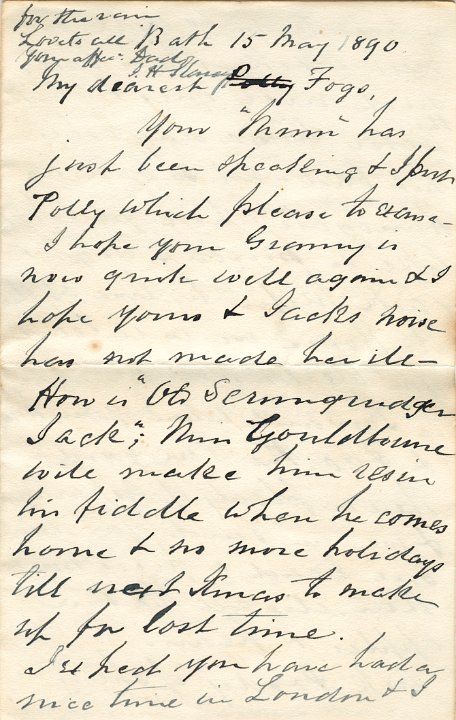 for the rain
Love to all Bath 15 May 1890
Your affec. Dad
My dearest Polly Fogs,
Your "Mum" has
just been speaking & I put
Polly which please to excuse -
I hope your Granny is
now quite well again & I
hope yours & Jacks noise
has not made her ill -
How is "Old Scrumgudger
Jack", Miss Gouldbourne
will make him resin
his fiddle when he comes
home & no more holidays
till next Xmas to make
up for lost time.
I hear you have had a
nice time in London & I